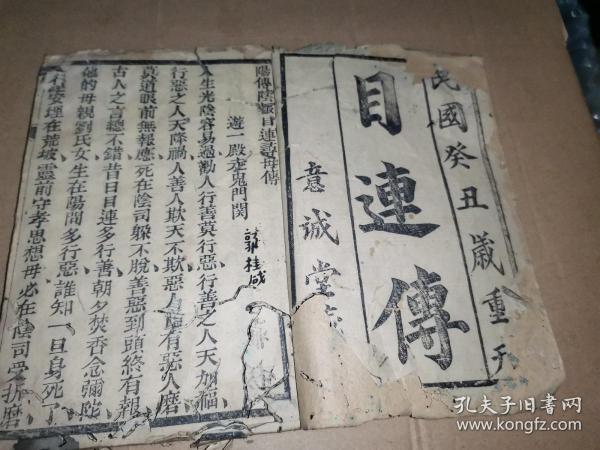 民國癸丑歲重刊
目連傳
意誠堂
郭桂咸
陽傳陰報目連尋母傳
遊一殿虛鬼門関
人生光陰容易過勸人行善莫行惡行善之人天加福
行惡之人天降禍人善人欺天不欺惡人自有惡人磨
莫道眼前無報應死在陰司躲不脫善惡到頭終有報
古人之言總不錯昔日目連多行善朝夕焚香念彌陀
他的母親劉氏女生在陽間多行惡誰知一旦身死了
安埋在荒坡靈前守孝思想母必在陰司受折磨
孔夫子旧书网
www.kongfz.com